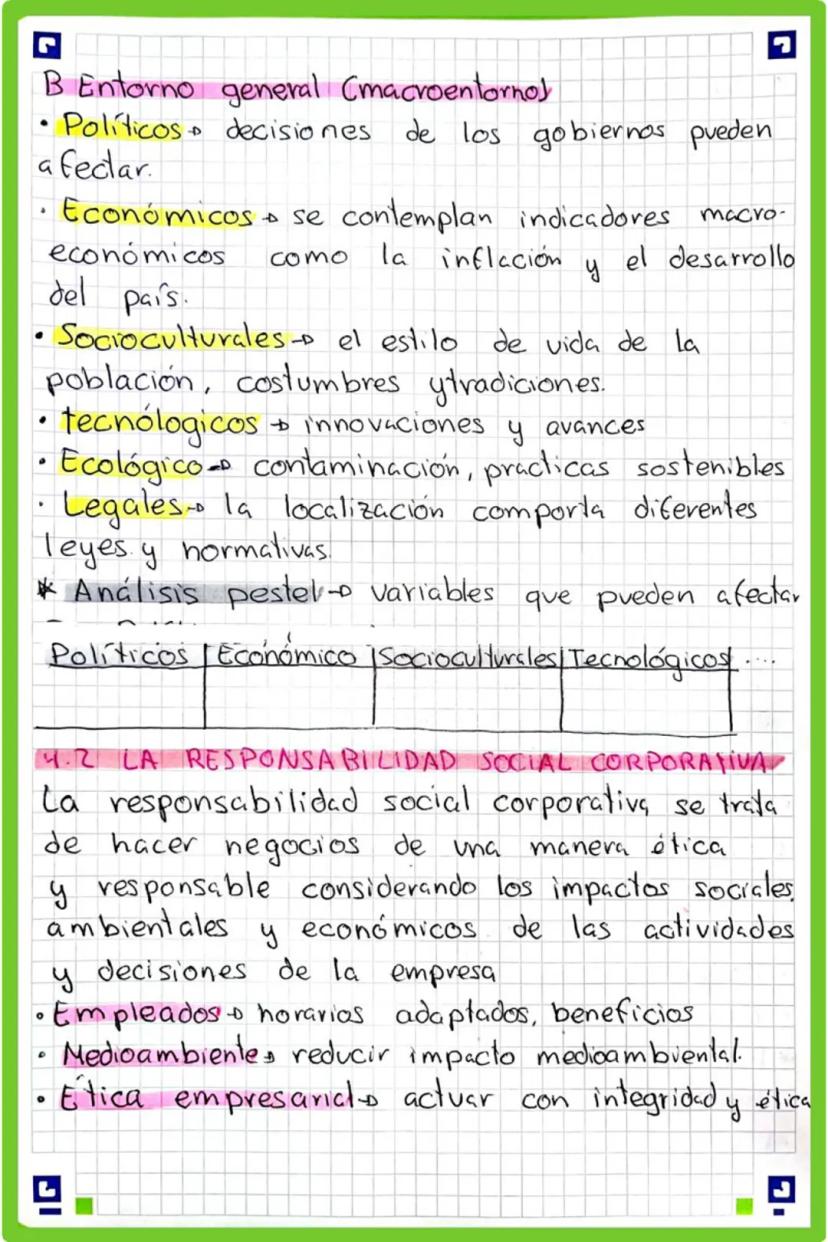 B Entorno general (macroentorno)
• Políticos → decisiones de los gobiernos pueden
afectar.
• Económicos → se contemplan indicadores macro-
económicos como la inflación y el desarrollo
del país.
• Socioculturales → el estilo de vida de la
población, costumbres y tradiciones.
• tecnólogicos → innovaciones y avances
• Ecológico → contaminación, practicas sostenibles
• Legales → la localización comporta diferentes
leyes y normativas.
* Análisis pestel → variables que pueden afectar
Políticos | Económico | Socioculturales | Tecnológicos ....
4.2 LA RESPONSABILIDAD SOCIAL CORPORATIVA
La responsabilidad social corporativa se trata
de hacer negocios de una manera ética
y responsable considerando los impactos sociales,
ambientales y económicos de las actividades
y decisiones de la empresa
• Empleados → horarios adaptados, beneficios
• Medioambiente → reducir impacto medioambiental.
• Ética empresarial → actuar con integridad y ética